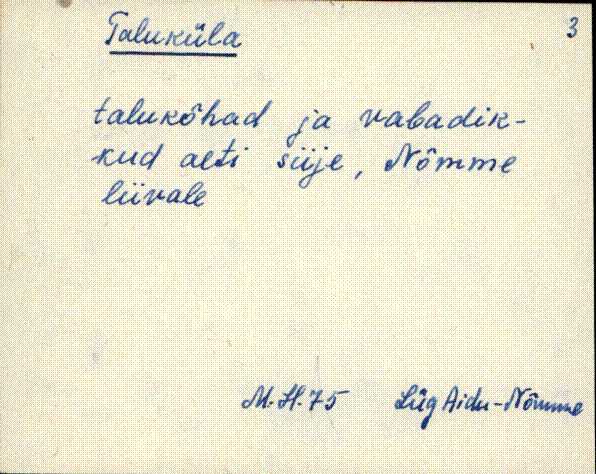 Taluküla 3
talukõhad ja vabadik-
kud aeti siije, Nõmme
liivale
M.H.75 Lüg Aidu-Nõmme